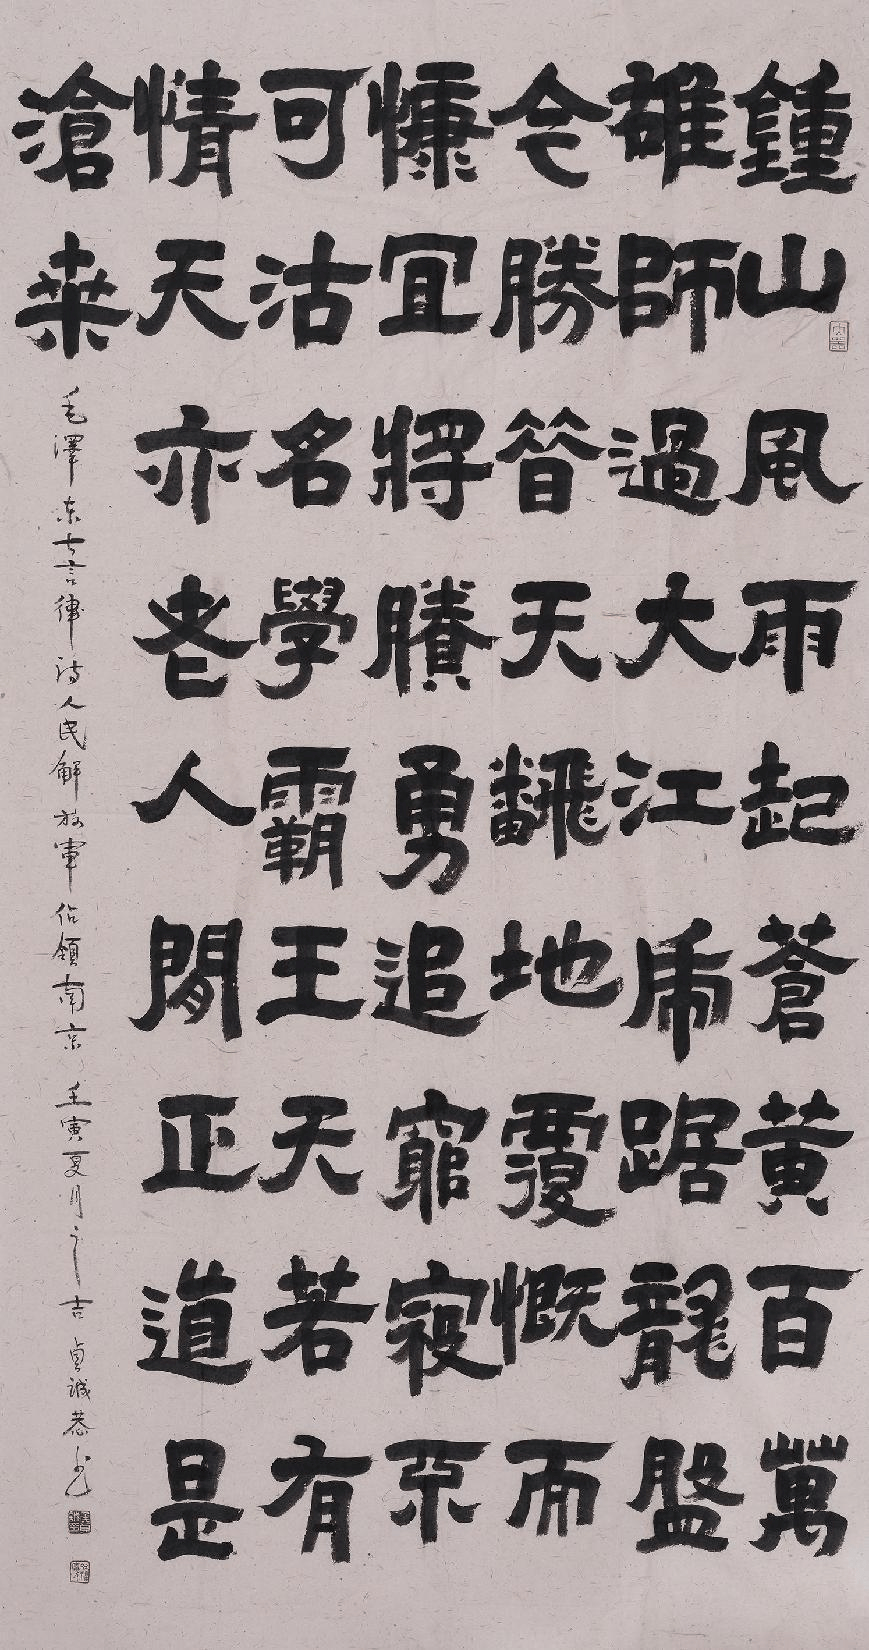 鍾山風雨起蒼黃百萬
雄師過大江虎踞龍盤
今勝昔天飜地覆慨而
慷宜將賸勇追窮寇不
可沽名學霸王天若有
情天亦老人間正道是
滄桒
毛澤东七言律诗人民解放軍佔領南京 壬寅夏月之吉 貞誠恭书